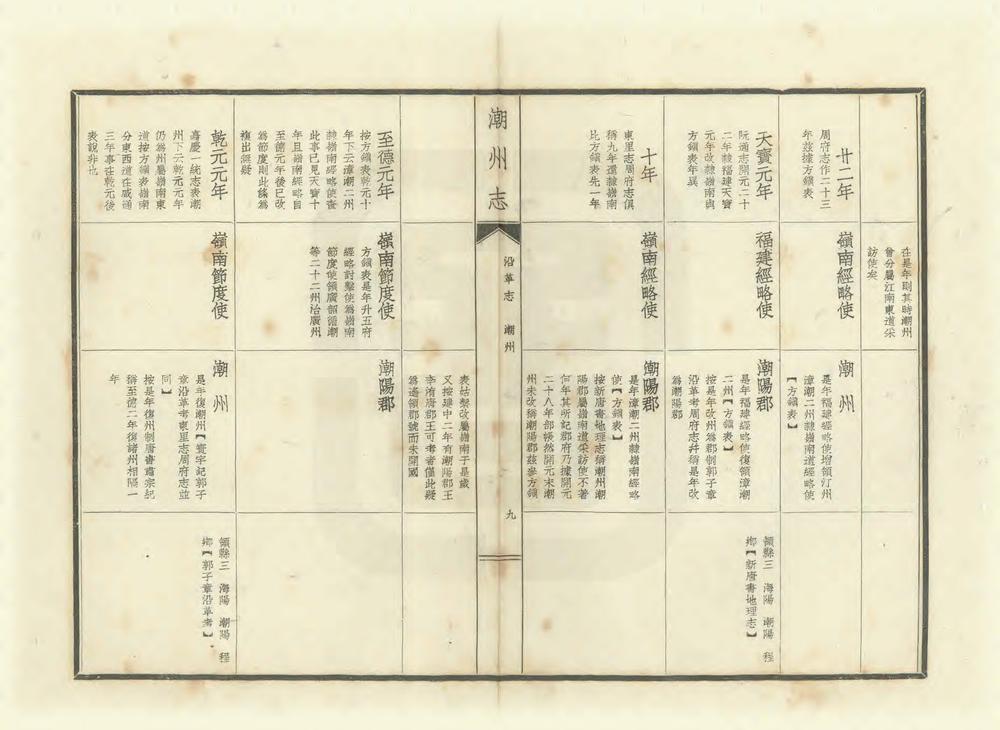 在是年則其時潮州
曾分屬江南東道采
訪使矣
廿二年
周府志作二十三
年茲據方鎮表
嶺南經略使
潮州
是年福建經略使增領汀州
漳潮二州隸嶺南道經略使
【方鎮表】
天寶元年
阮通志開元二十
二年隸福建天寶
元年改隸嶺南與
方鎮表年異
福建經略使
潮陽郡
是年福建經略使復領漳潮
二州【方鎮表】
按是年改州為郡制郭子章
沿革考周府志幷稱是年改
為潮陽郡
領縣三 海陽 潮陽 程
鄉【新唐書地理志】
十年
東里志周府志俱
稱九年還隸嶺南
比方鎮表先一年
嶺南經略使
潮陽郡
是年漳潮二州隸嶺南經略
使【方鎮表】
按新唐書地理志稱潮州潮
陽郡屬嶺南道采訪使不著
何年其所記郡府乃據開元
二十八年部帳然開元末潮
州未改稱潮陽郡茲參方鎮
潮州志
沿革志 潮州
九
表姑繫改屬嶺南于是歲
又按建中二年有潮陽郡王
李洧唐郡王可考者僅此疑
為遙領郡號而未開國
至德元年
按方鎮表乾元十
年下云漳潮二州
隸嶺南經略使查
此事已見天寶十
年且嶺南經略自
至德元年後已改
為節度則此條為
複出無疑
嶺南節度使
方鎮表是年升五府
經略討擊使為嶺南
節度使領廣韶循潮
等二十二州治廣州
潮陽郡
乾元元年
嘉慶一統志表潮
州下云乾元元年
仍為州屬嶺南東
道按方鎮表嶺南
分東西道在咸通
三年事在乾元後
表說非也
嶺南節度使
潮州
是年復潮州【寰宇記郭子
章沿革考東里志周府志並
同】
按是年復州制唐書肅宗紀
稱至德二年復諸州相隔一
年
領縣三 海陽 潮陽 程
鄉【郭子章沿革考】